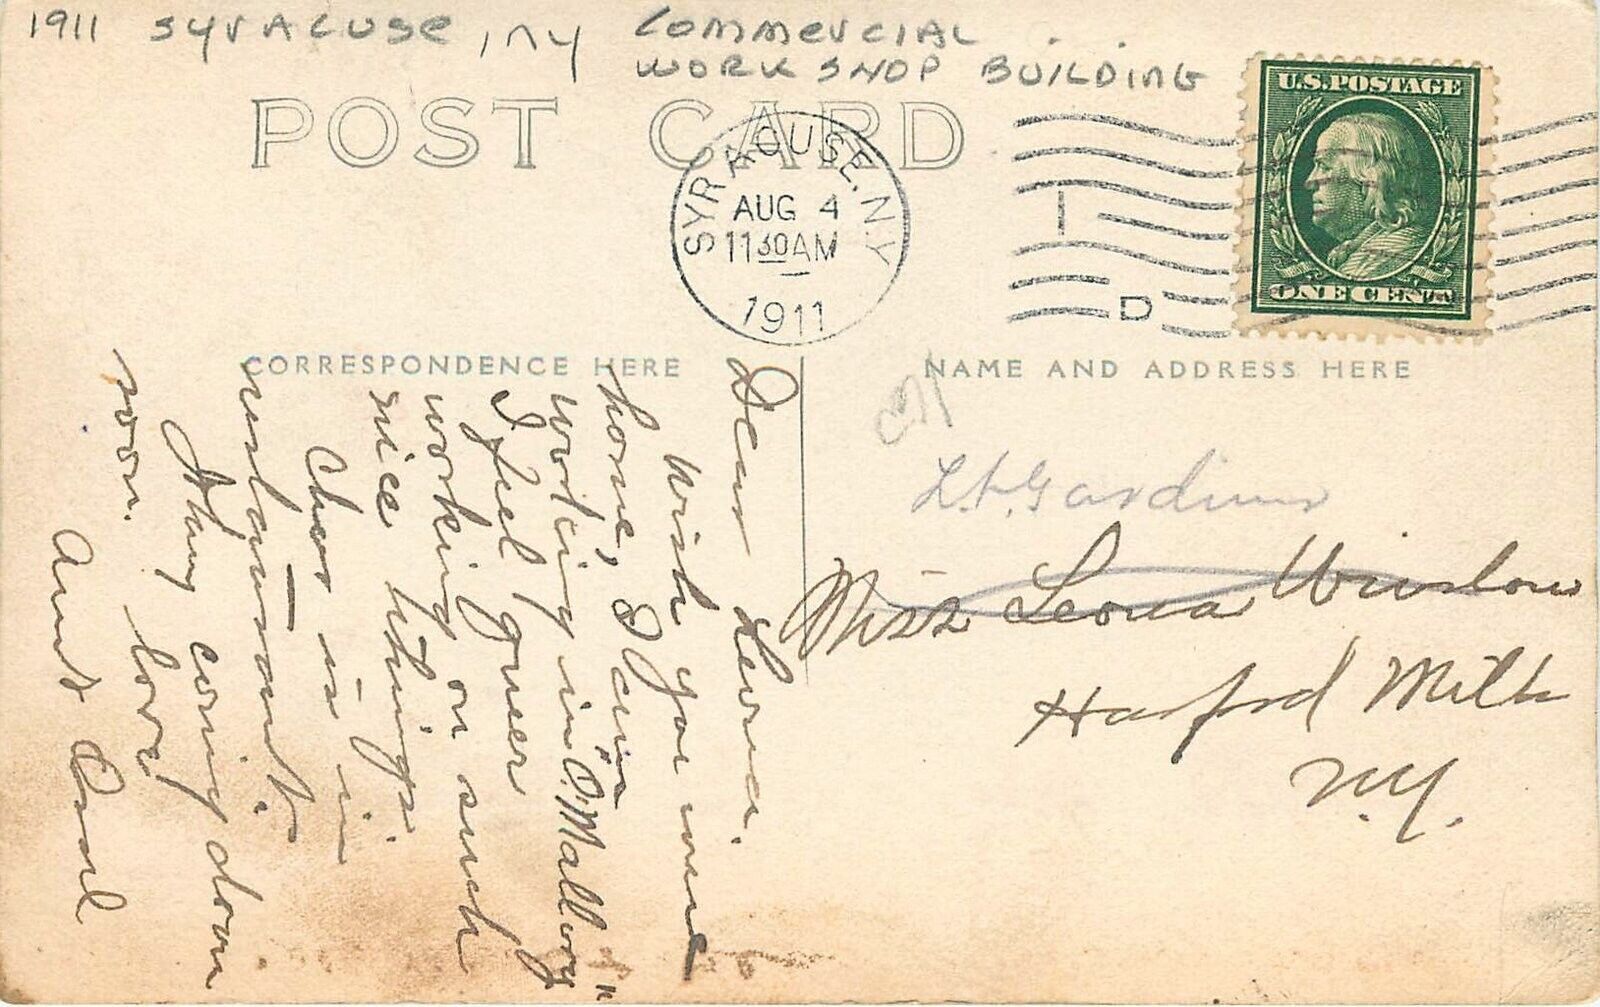 1911 SYRACUSE, NY COMMERCIAL
WORK SHOP BUILDING
POST CARD
U.S. POSTAGE
ONE CENT
SYRACUSE, N.Y.
AUG 4
11 30 AM
1911
1
D
CORRESPONDENCE HERE
NAME AND ADDRESS HERE
Dear Leona.
Wish you were
home, I am
working in "O'Mallory"
I feel queer
working on such
nice things.
Chas is in
restaurant.
coming down
soon. love
Aunt
L. H. Gardiner
Miss Leona Winslow
Harford Mills
N.Y.